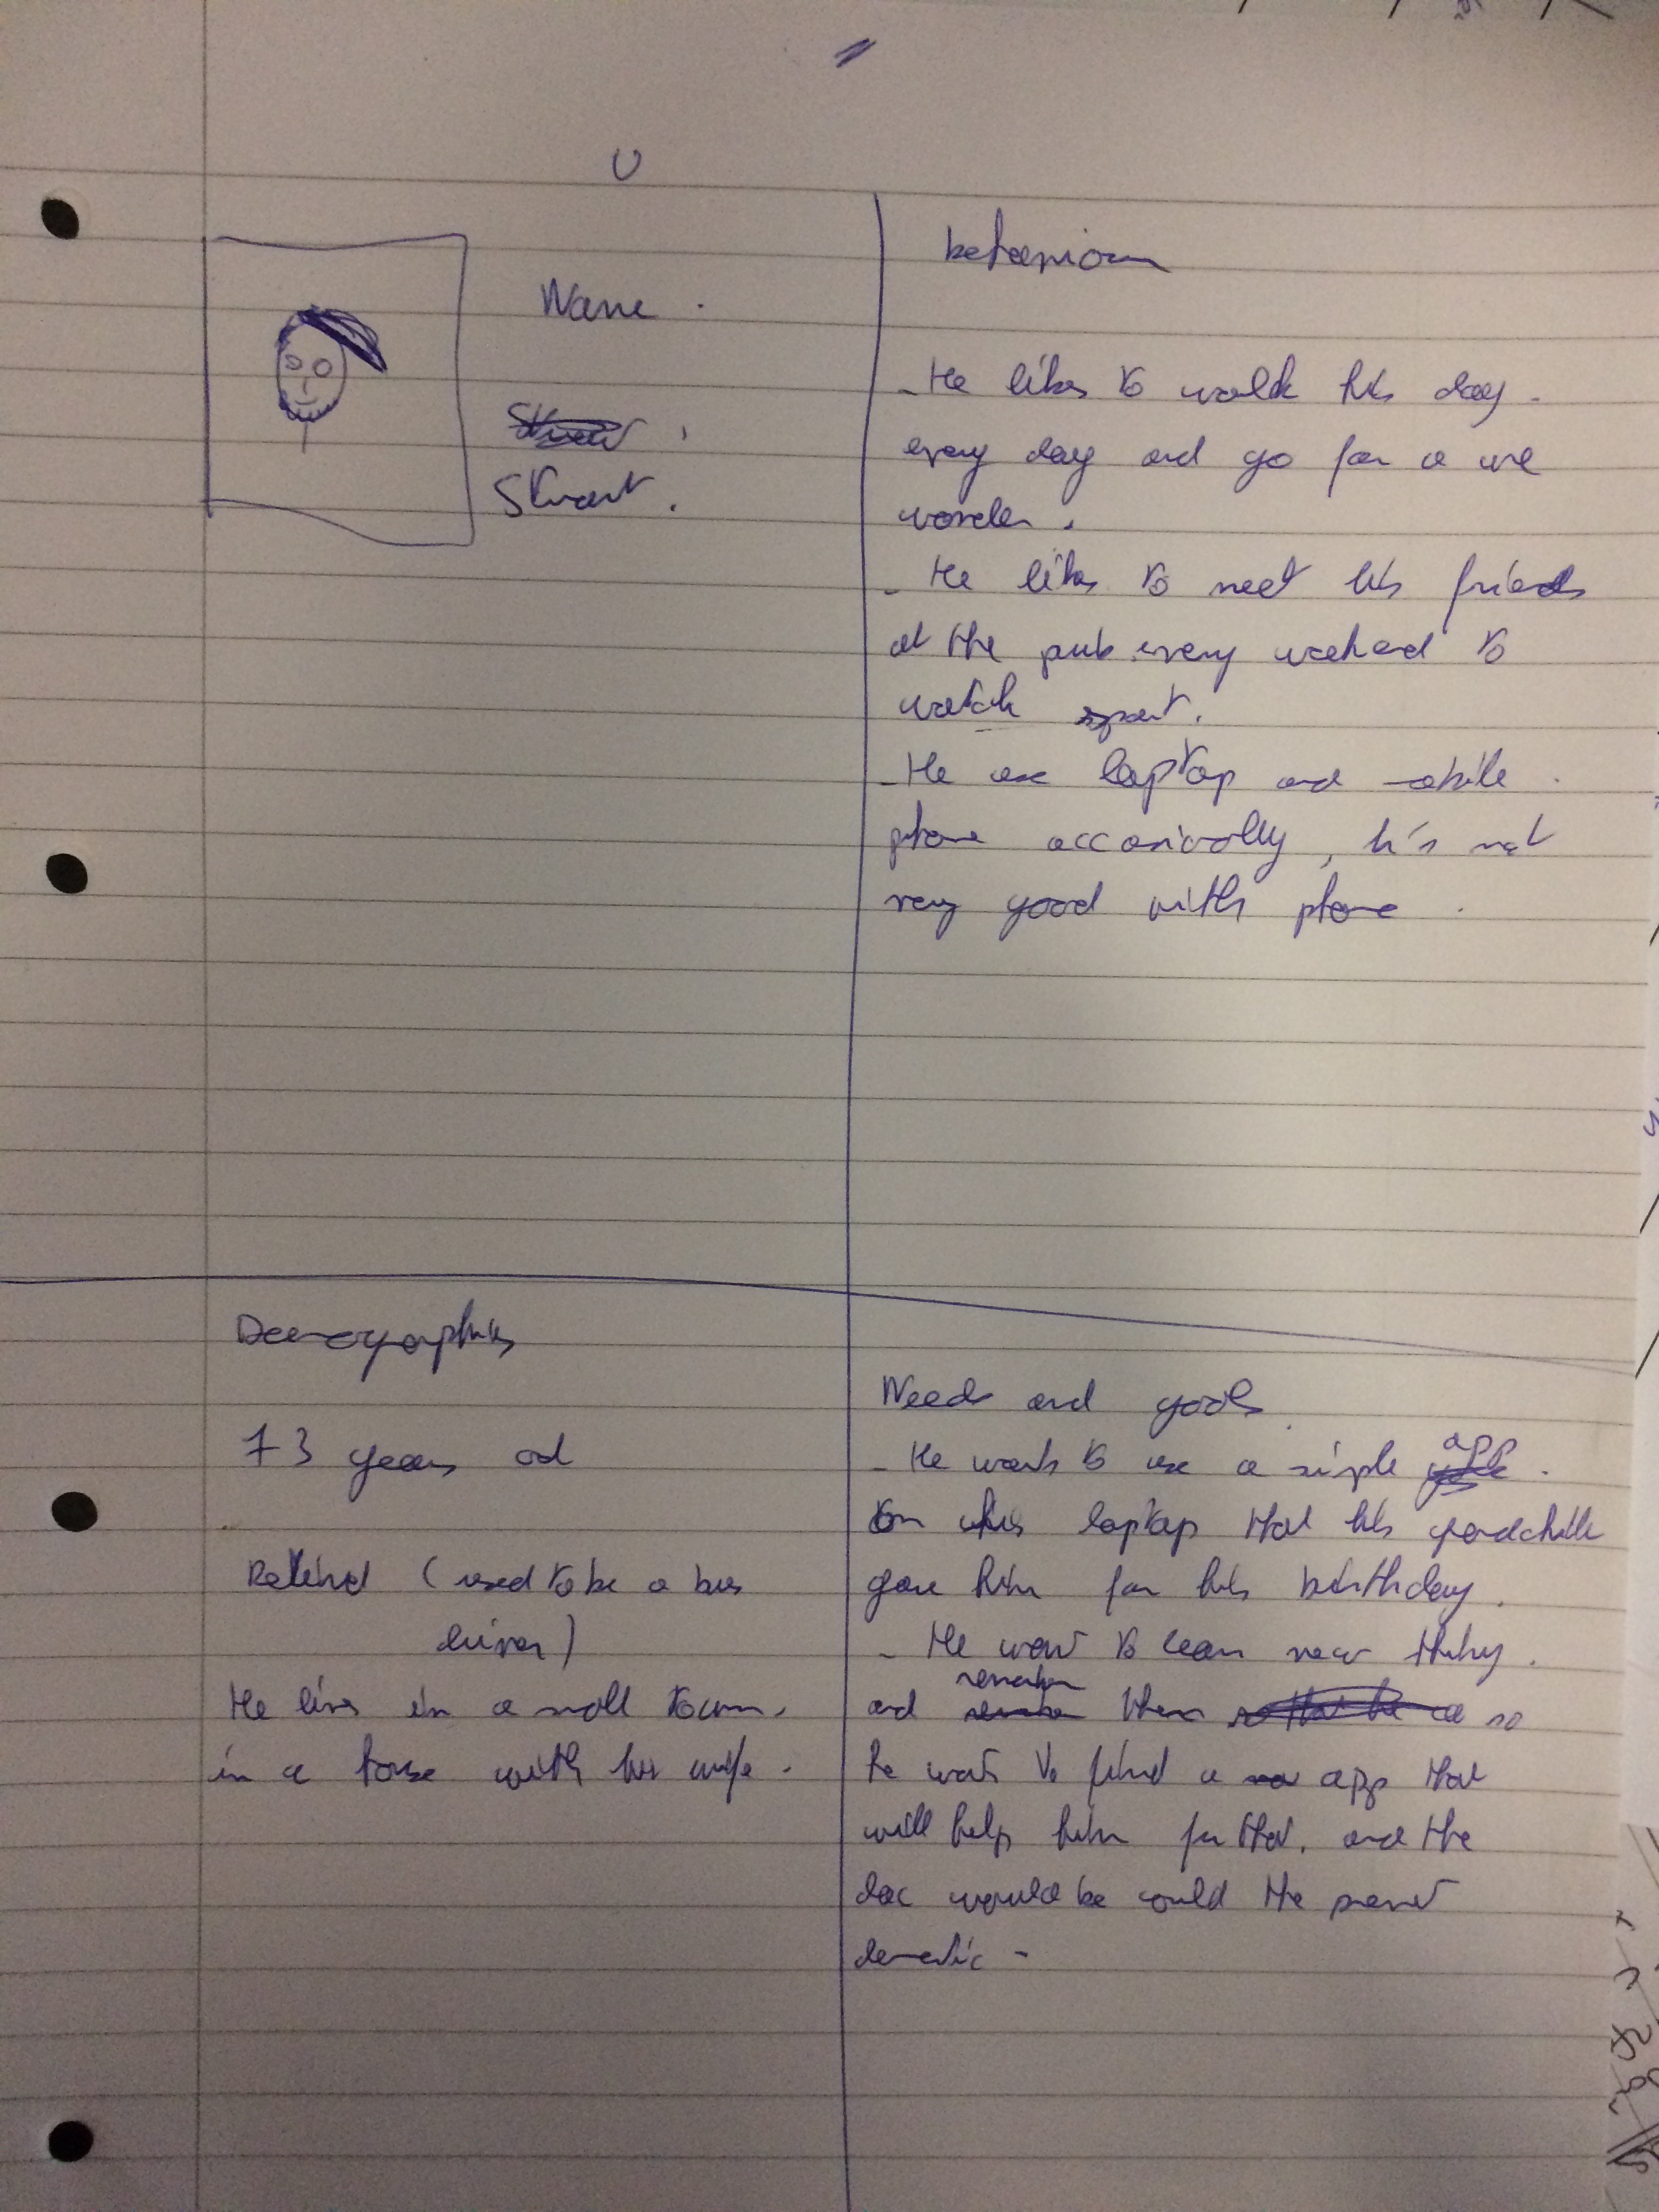 Name.
Stuart.
behaviour
- He likes to walk his dog.
every day and go for a wee
wander.
- He likes to meet his friends
at the pub every weekend to
watch sport.
- He use laptop and mobile
phone occasionally, he's not
very good with phone.
Demographics
73 years old
Retired (used to be a bus
driver)
He lives in a small town,
in a house with his wife.
Needs and goals
- He wants to use a simple app
on his laptop that his grandchild
gave him for his birthday.
- He want to learn new things.
and remember them so
he wants to find a app that
will help him for that. and the
doc would be could the prevent
dementia -